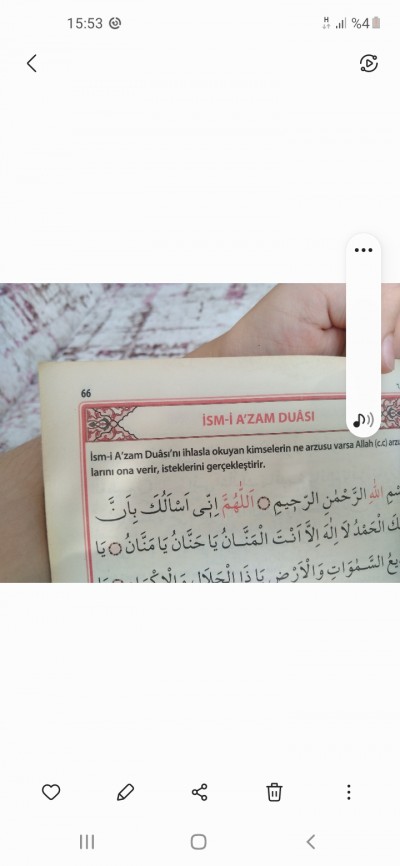 15:53
%4
66
İSM-İ A'ZAM DUÂSI
İsm-i A'zam Duâsı'nı ihlasla okuyan kimselerin ne arzusu varsa Allah (c.c)
larını ona verir, isteklerini gerçekleştirir.
اللّٰهِ الرَّحْمٰنِ الرَّحِيمِ ۞ اَللّٰهُمَّ اِنِّى اَسْاَلُكَ بِاَنَّ
لَكَ الْحَمْدُ لَا اِلٰهَ اِلَّا اَنْتَ الْمَنَّانُ يَا حَنَّانُ يَا مَنَّانُ ۞ يَا
السَّمٰوَاتِ وَالْاَرْضِ يَا ذَا الْجَلَالِ وَالْاِكْرَامِ ۞ يَا